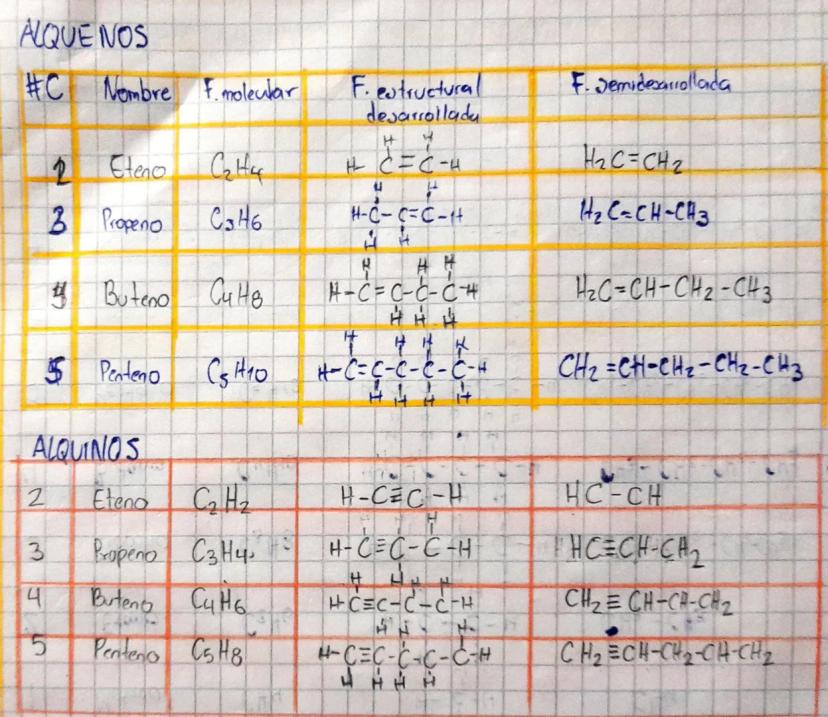 ALQUENOS
#C Nombre F. molecular F. estructural desarrollada F. semidesarrollada
2 Eteno C2H4 H C=C-H H2C=CH2
H H
3 Propeno C3H6 H-C-C=C-H H2C=CH-CH3
H H
H H
4 Buteno C4H8 H-C=C-C-C-H H2C=CH-CH2-CH3
H H H
H H H
5 Penteno C5H10 H-C=C-C-C-C-H CH2=CH-CH2-CH2-CH3
H H H H
H H H H
ALQUINOS
2 Eteno C2H2 H-C≡C-H HC-CH
3 Propeno C3H4 H-C≡C-C-H HC≡CH-CH2
4 Buteno C4H6 H-C≡C-C-C-H CH2≡CH-CH-CH2
5 Penteno C5H8 H-C≡C-C-C-C-H CH2≡CH-CH2-CH-CH2
H H H H